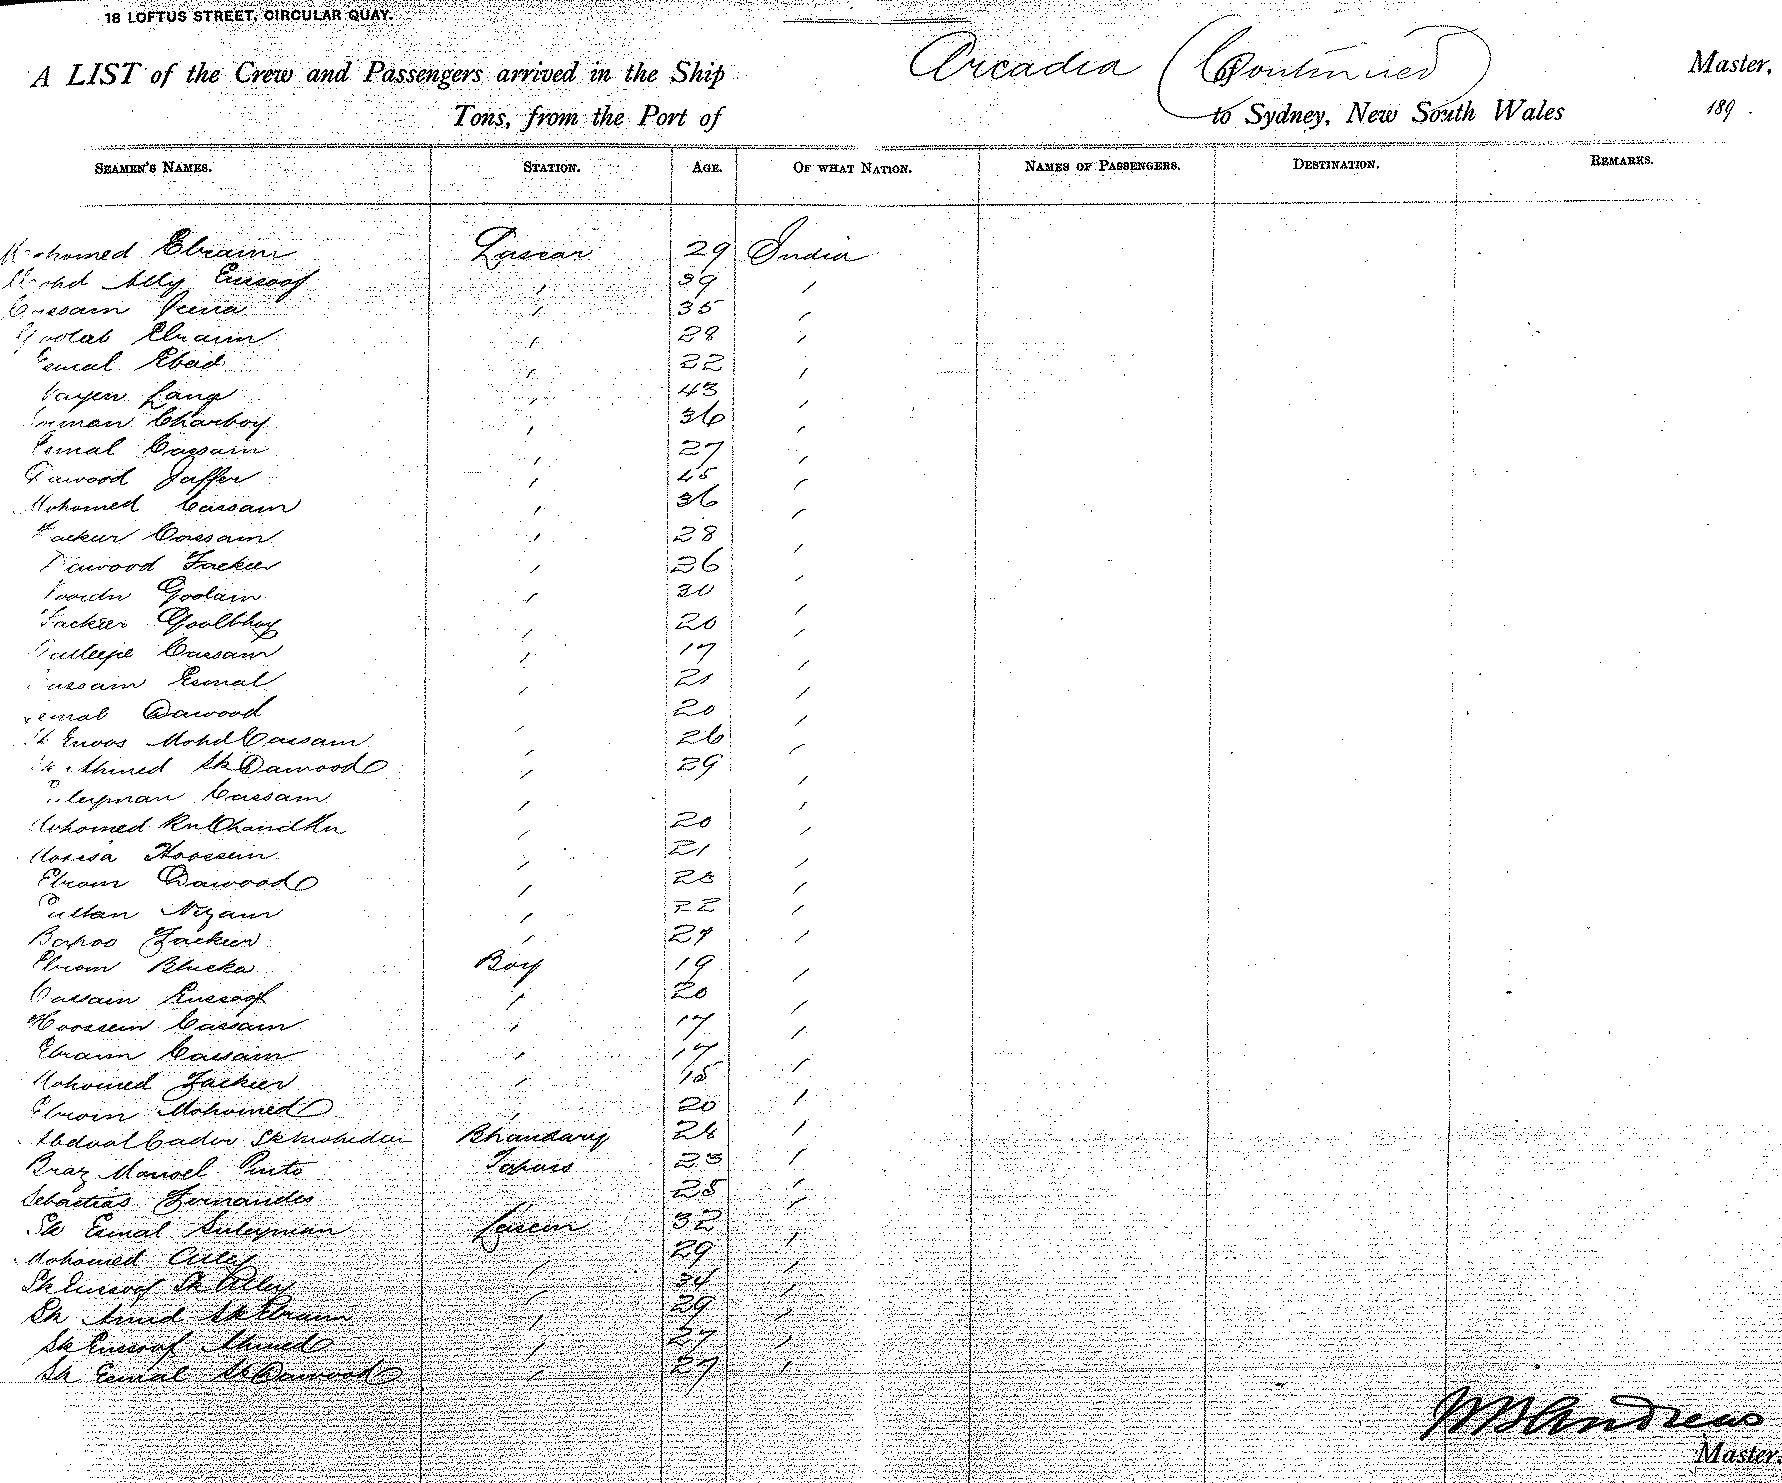 18 LOFTUS STREET, CIRCULAR QUAY.
A LIST of the Crew and Passengers arrived in the Ship Arcadia (Continued) Master,
Tons, from the Port of to Sydney, New South Wales 189 .
SEAMEN'S NAMES. STATION. AGE. OF WHAT NATION. NAMES OF PASSENGERS. DESTINATION. REMARKS.
Mahomed Ebraim Lascar 29 India
Mohd Ally Eusoof " 39 "
Cassam " 35 "
Ebraim " 28 "
Esmal Ebad " 22 "
Lang " 43 "
Charboy " 36 "
Esmal Cassam " 27 "
Dawood Jaffer " 45 "
Mohomed Cassam " 36 "
Fackur Cassam " 28 "
Dawood Fackier " 26 "
Goolam " 30 "
Fackier Goolbhoy " 20 "
Cassam " 17 "
Cassam Esmal " 21 "
Esmal Dawood " 20 "
Sk Enoos Mohd Cassam " 26 "
Sk Ahmed Sk Dawood " 29 "
Suleyman Cassam " "
Mohomed " 20 "
Hoossein " 21 "
Ebram Dawood " 28 "
Sultan Nizam " 22 "
Fackier " 24 "
Ebram Boy 19 "
Cassam Eussoof " 20 "
Hoossein Cassam " 17 "
Ebraim Cassam " 17 "
Mohomed Fackier " 18 "
Ebraim Mohomed " 20 "
Abdool Cader Bhandary 26 "
Braz Manoel Pinto 23 "
Sebastiao Fernandes 25 "
Sk Esmal Suleyman Lascar 32 "
Mohomed Ally " 29 "
Sk Eusoof Sk Ally " 34 "
Sk Amid Sk Ebraim " 29 "
Sk Eussoof Ahmed " 27 "
Sk Esmal Sk Dawood " 27 "
W B Andrews
Master.